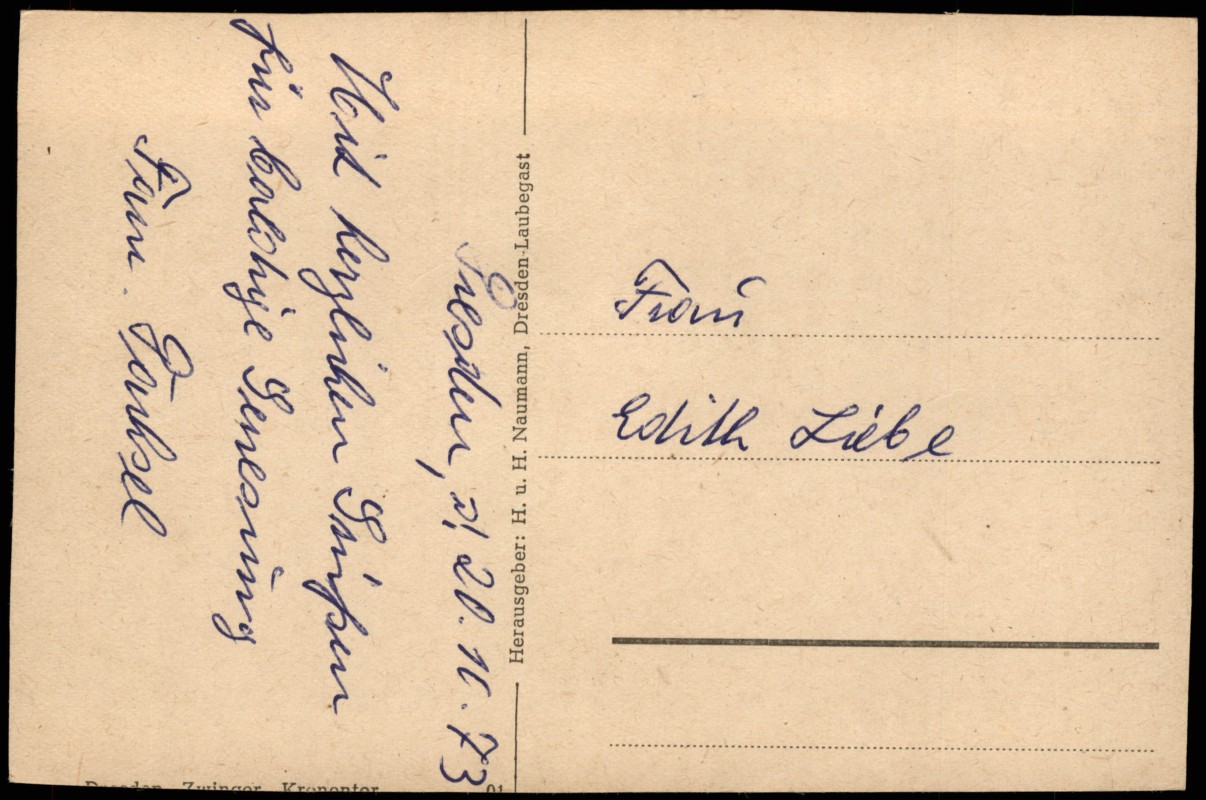 Dresden, d. 20.10.73
Mit herzlichen Grüßen
für baldige Genesung
Fam.
Herausgeber: H. u. H. Naumann, Dresden-Laubegast
Frau
Edith Liebe
Dresden Zwinger Kronentor
01